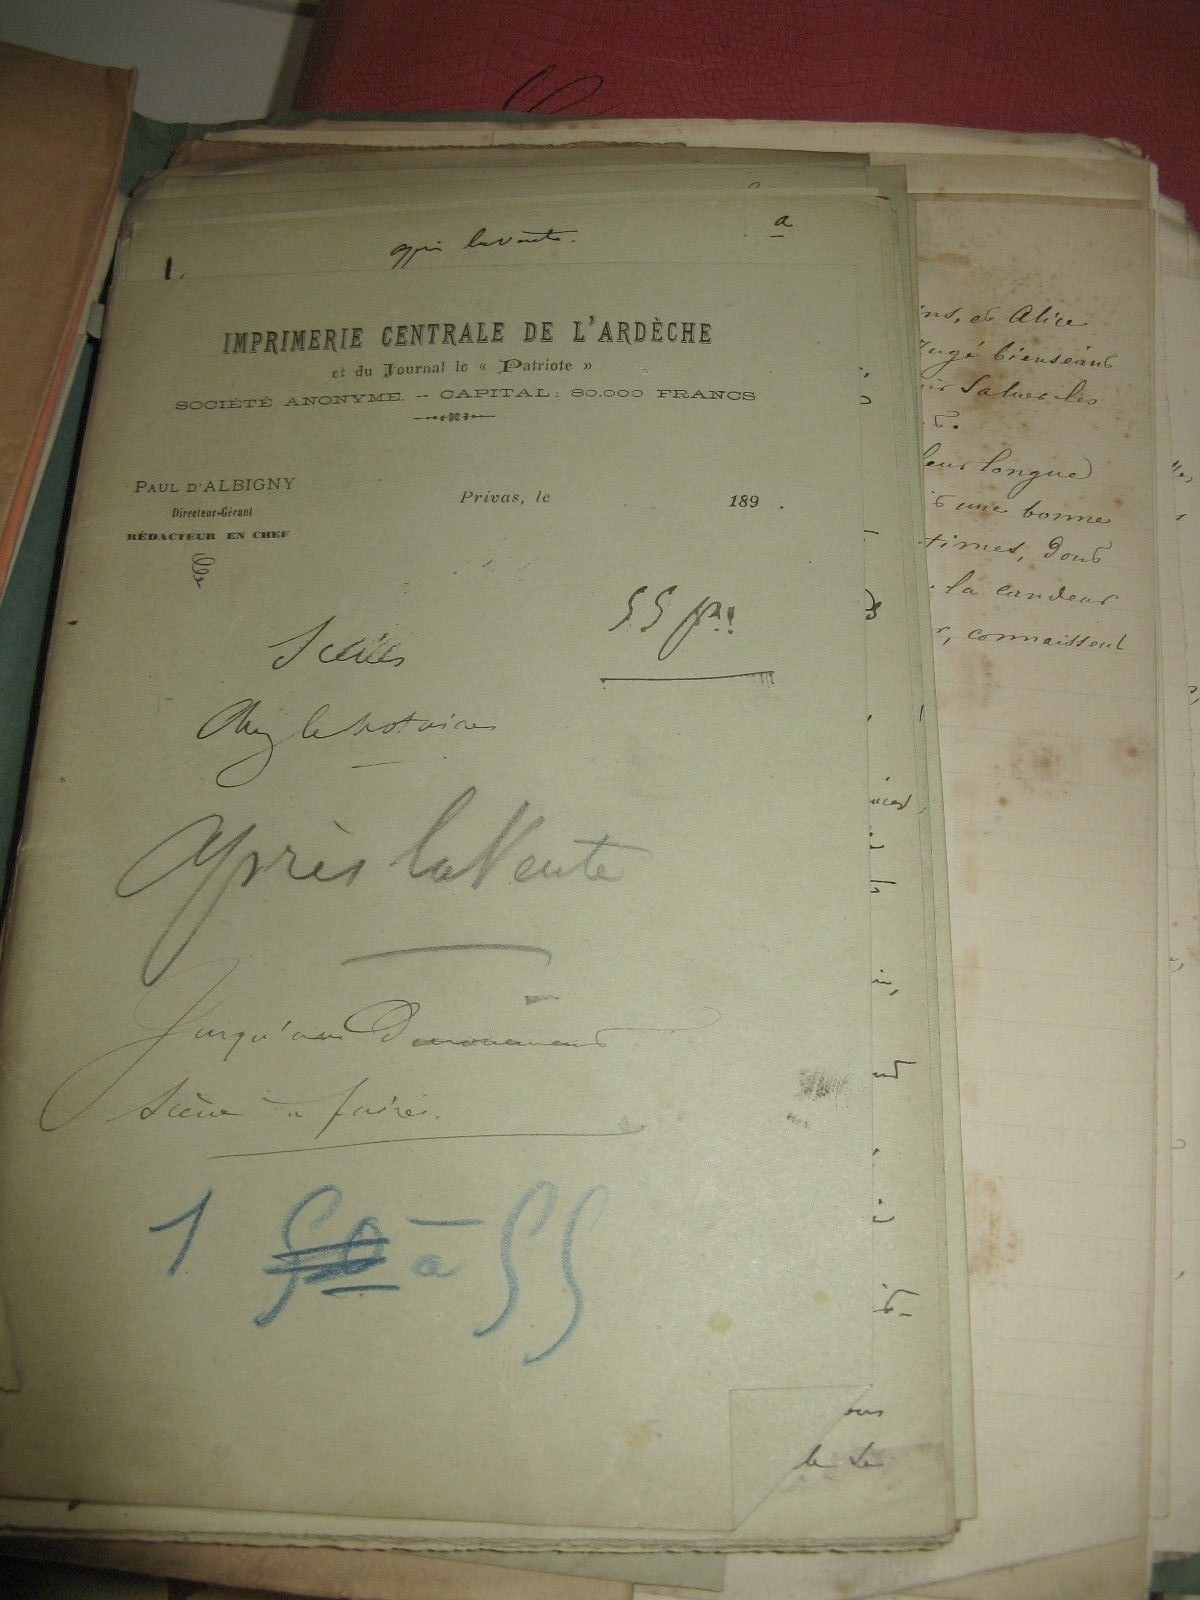 a
1. après la vente.
IMPRIMERIE CENTRALE DE L'ARDÈCHE
et du Journal le « Patriote »
SOCIÉTÉ ANONYME. -- CAPITAL: 80.000 FRANCS
PAUL D'ALBIGNY
Directeur-Gérant
RÉDACTEUR EN CHEF
Privas, le 189 .
55 p.
Scènes
Chez le notaire
Après la Vente
Jusqu'au Dénouement
Scène à faire.
1 50 à 55
ous
le Le
ins, et Alice
jugé bienséant
Saluer les
leur longue
une bonne
times, dont
la candeur
, connaissent